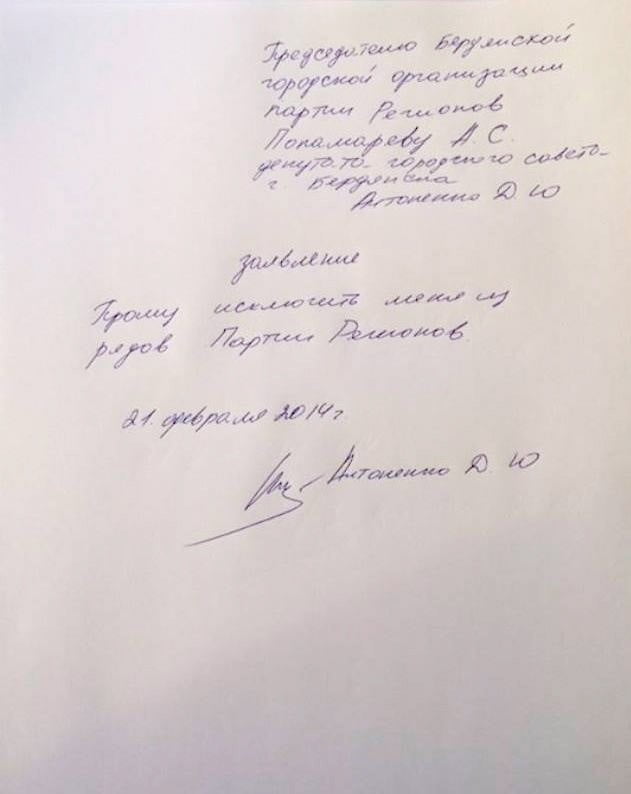 Председателю Бердянской
городской организации
партии Регионов
Попамареву А. С.
депутата городского совета
г. Бердянска
Антоненко Д. Ю
заявление
Прошу исключить меня из
рядов Партии Регионов.
21. февраля 2014 г.
Антоненко Д. Ю